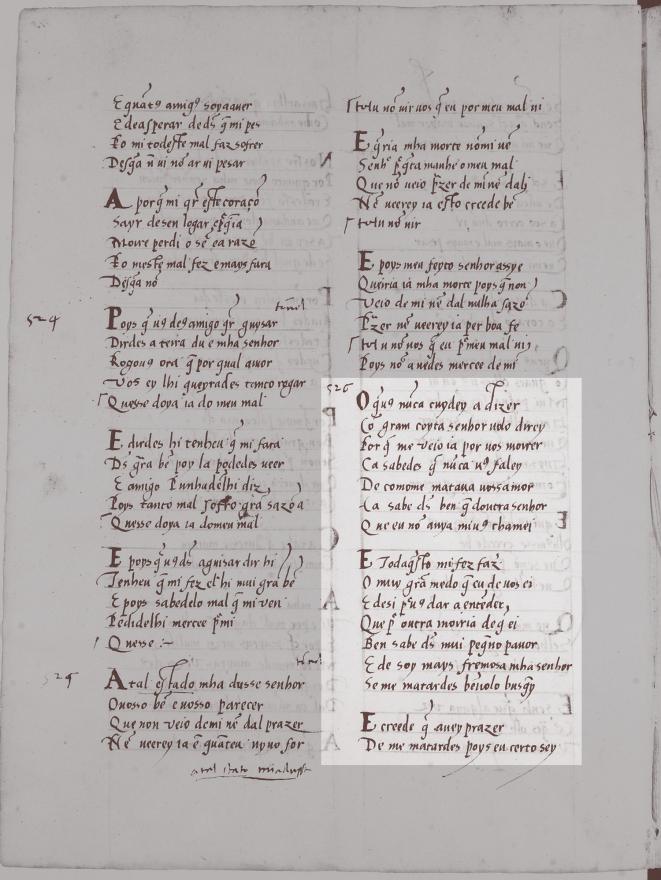 E quātꝯ amigꝯ soyaauer
E deasperar deds q̄ mi pes
Po mi todeste mal faz sofrer
Desq̄a ñ ui nō ar vi pesar
A porq̄ mi qr̄ este coraçō
Sayr desen logar, esq̄ia
Moire perdi o sē ea razō
Po meste mal fez emays fara
Desq̄a no
tornel
524
Poys q̄ uꝯ deꝯ amigo qr̄ guysar
Dirdes a teira du e mha senhor
Rogouꝯ ora q̄ por qual amor
Vos ey lhi queyrades tanto rogar
Quesse doya ia do meu mal
E dirdes hi tenheu q̄ mi fara
Ds gr̄a bē poy la podedes ueer
E amigo punhadelhi diz
Poys tanto mal sofro grā sazō a
Quesse doya ia domeu mal
E poys q̄ uꝯ ds aguisar dir hi
Tenheu q̄ mi fez el hi mui grā bē
E poys sabedelo mal q̄ mi ven
Pedidelhi mercee pmi
Quesse :~
525
Atal estado mha dusse senhor
Ouosso bē e uosso parecer
Que non veio demi nē dal prazer
Nē veerey ia ē quāteu uyuo for
atal stato miadusse
Ftolu nō vir vos q̄ eu por meu mal ui
Eq̄ria mha morte nōmi uē
Senhꝰ pq̄ca manhe o meu mal
Que nō veio pzer de mi nē dal
Nē veerey ia esto creede bē
Ftolu nō vir
E poys meu feyto senhor assy e
Queiria ia mha morte poys q̄ non
Veio de mi nē dal nulha sazō
Pzer nō veerey ia per boa fe
Ftolu nō vos q̄ eu pmeu mal ui,
Poys nō auedes mercee de mi
526
O q̄uꝯ nūca cuydey a dizer
Cō gram coyta senhor uolo direy
Por q̄ me veio ia por uos morrer
Ca sabedes q̄ nūca uꝯ faley
De comome mataua uossamor
Ca sabe ds ben q̄ doutra senhor
Que eu nō auya miuꝯ chamei
E Todaq̄sto mi fez faz
O muy grā medo q̄ eu de uos ei
E desi puꝯ dar a entēder,
Que p outra moiria de q̄ ei
Ben sabe ds mui peq̄no pauor
E de soy mays fremosa mha senhor
Se me matardes bē uolo busq̄y
E creede q̄ auey prazer
De me matardes poys eu certo sey